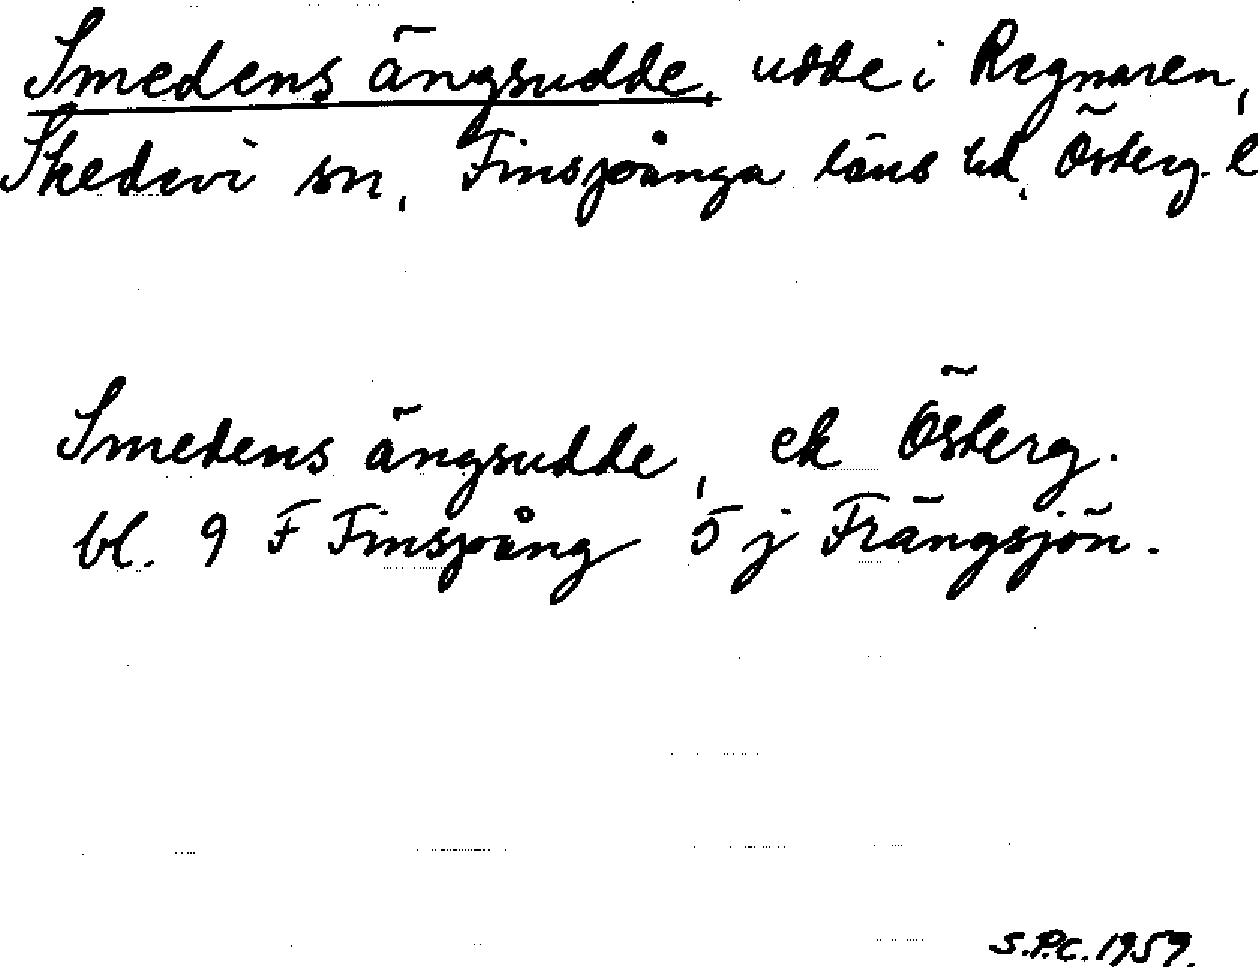 Smedens ängsudde, udde i Regnaren,
Skedevi sn, Finspånga läns hd, Österg. l
Smedens ängsudde, ek Österg.
bl. 9 F Finspång 5 j Frängsjön.
S.P.C. 1959.